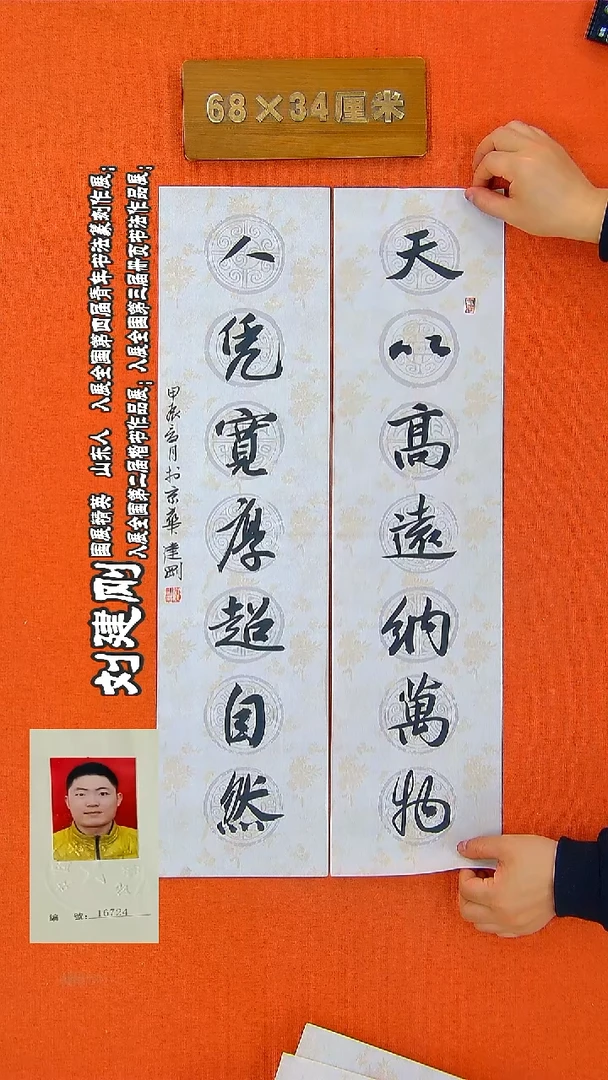 68×34厘米
天以高远納萬物
人凭寬厚超自然
甲辰
月於京華建剛
刘建刚
国展精英 山东人 入展全国第四届青年书法篆刻作展;
入展全国第二届楷书作品展; 入展全国第三届册页书法作品展;
編 號: 16724